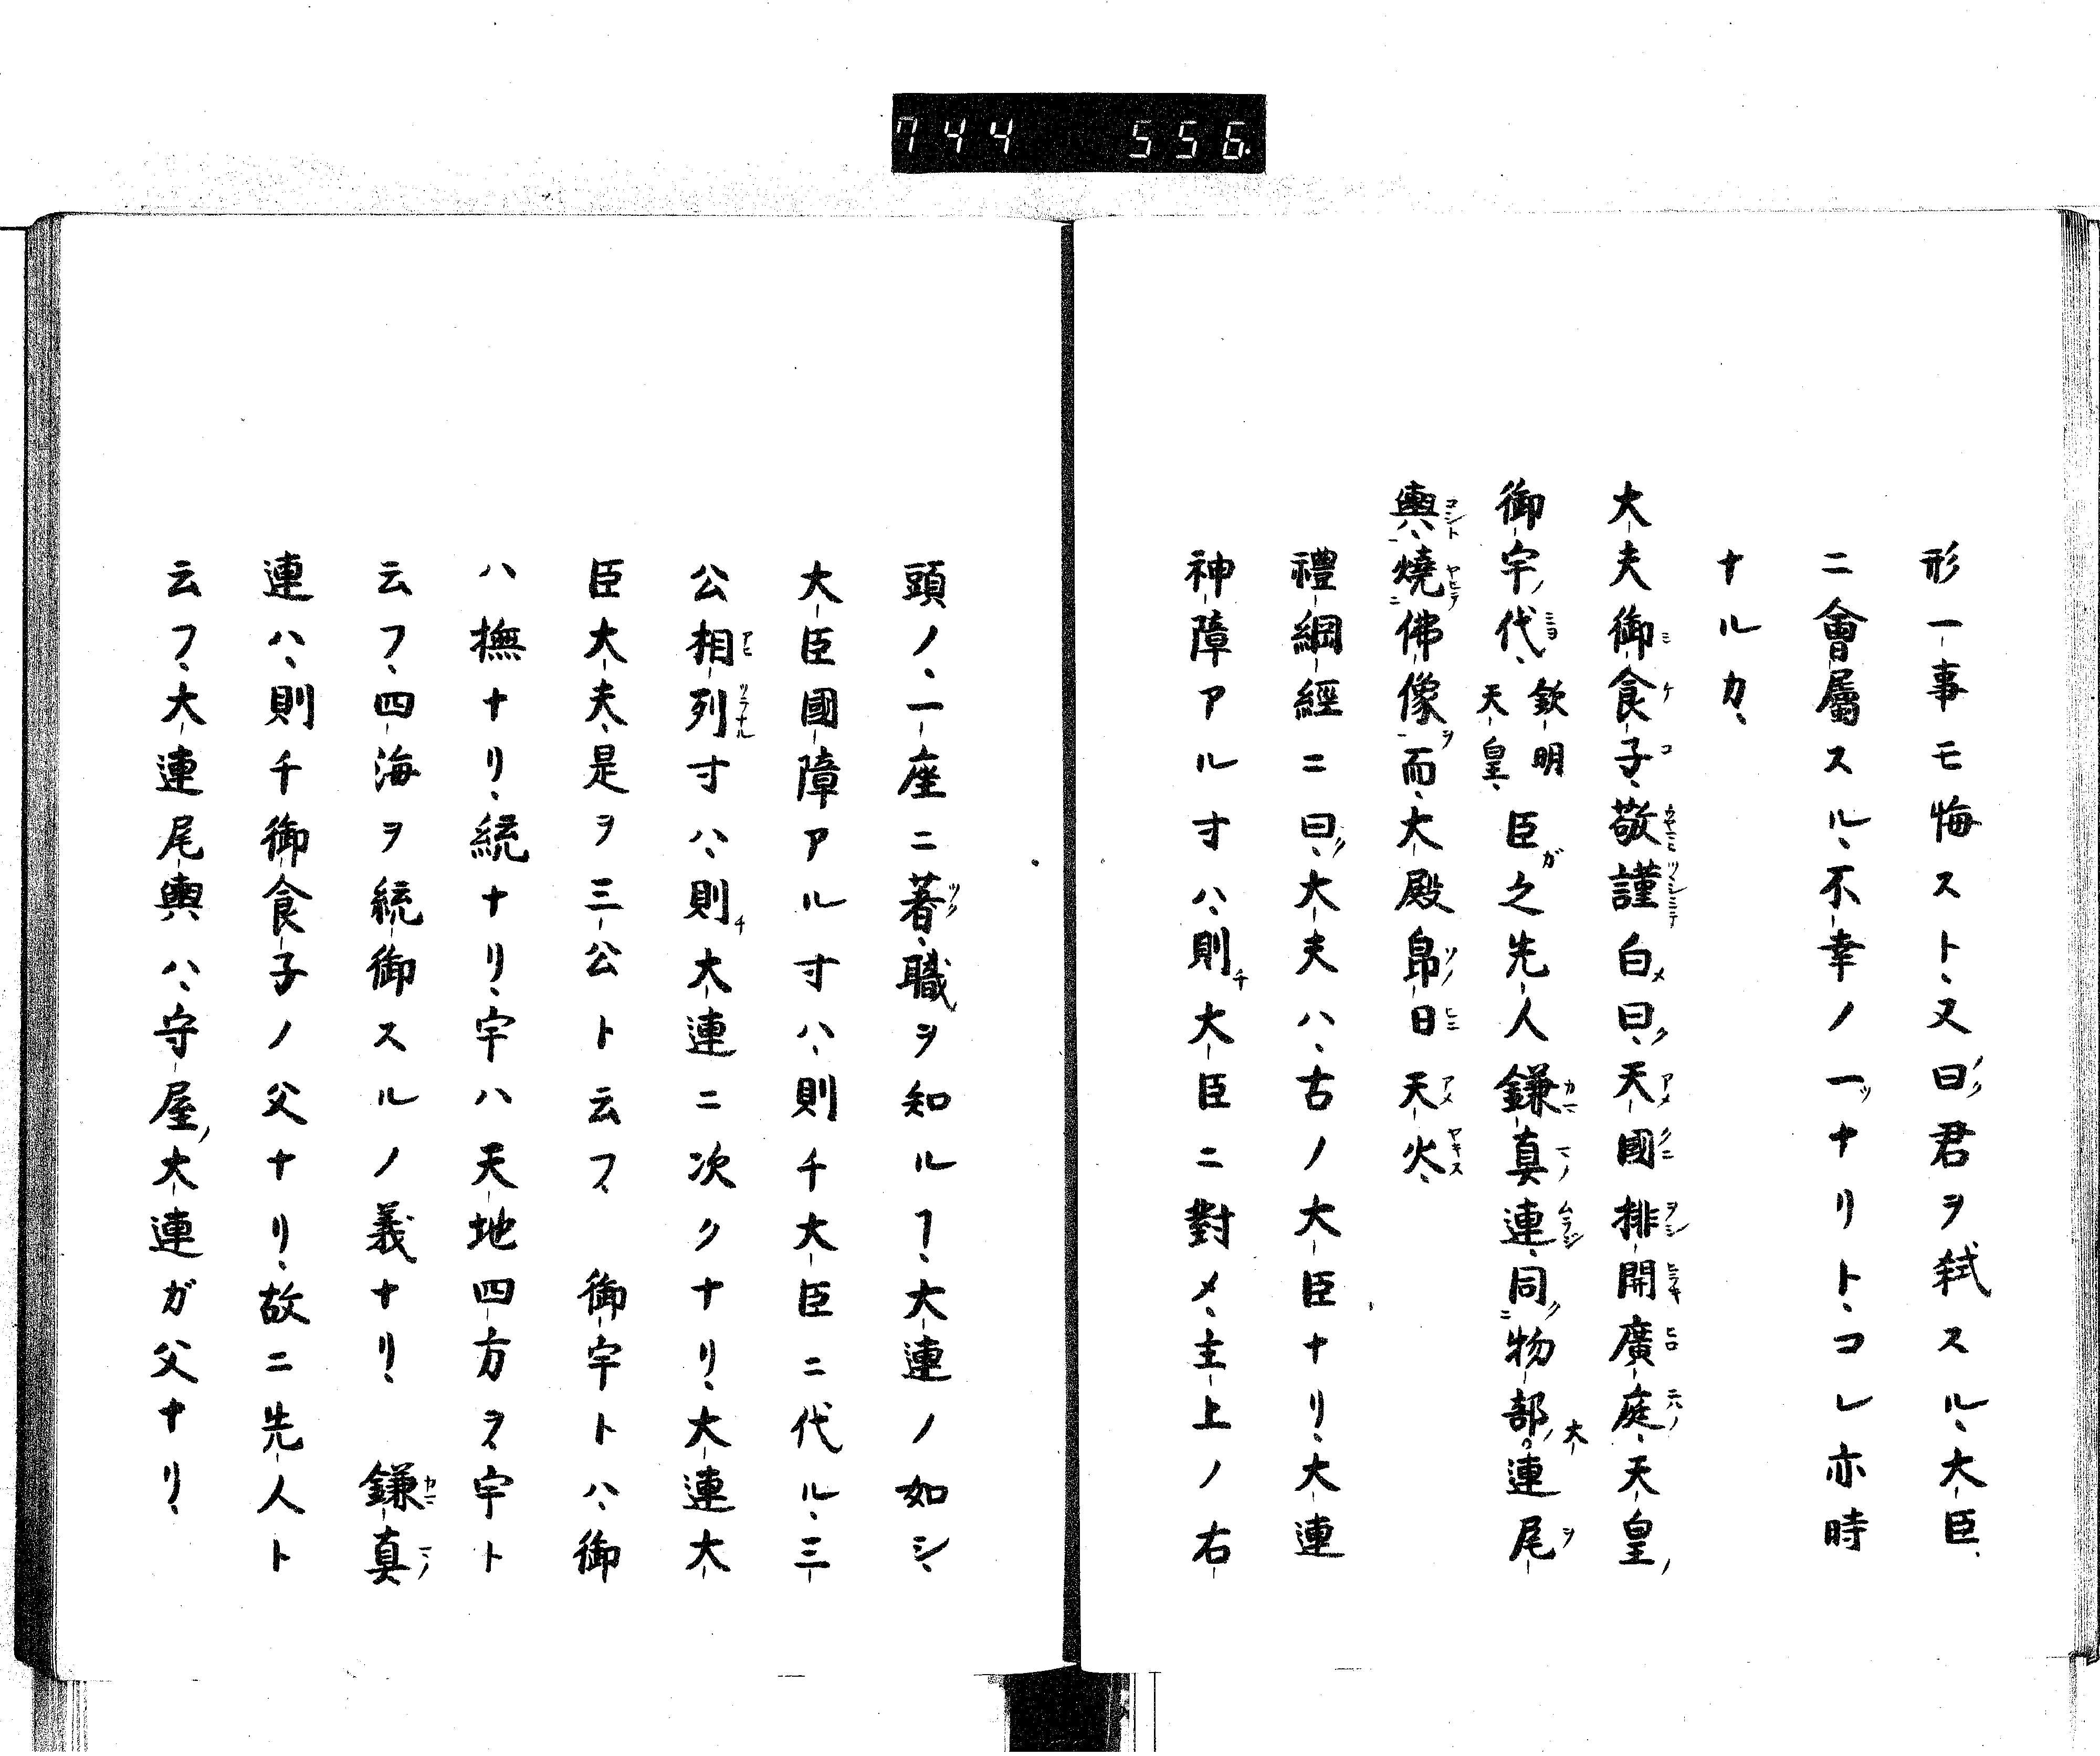 744 556.
形一事モ悔スト、又曰君ヲ弑スル、大臣、
ニ會屬スル、不幸ノ一ツナリト、コレ亦時
ナルカ、
大夫御食子、敬謹白曰、天國排開廣庭、天皇ノ
御宇ノ代、欽明天皇、臣ガ之先人鎌真連、同物部大連尾
輿、燒佛像ヲ而、大殿帛日天火、
禮綱經ニ曰、大夫ハ、古ノ大臣ナリ、大連
神障アル寸ハ、則チ大臣ニ對メ、主上ノ右
頭ノ、一座ニ著、職ヲ知ルヿ、大連ノ如シ、
大臣國障アル寸ハ、則チ大臣ニ代ル、三
公相列寸ハ、則チ大連ニ次クナリ、大連大
臣大夫、是ヲ三公ト云フ 御宇トハ、御
ハ撫ナリ、統ナリ、宇ハ天地四方ヲ宇ト
云フ、四海ヲ統御スルノ義ナリ、 鎌真
連ハ、則チ御食子ノ父ナリ、故ニ先人ト
云フ、大連尾輿ハ、守屋ノ大連ガ父ナリ、